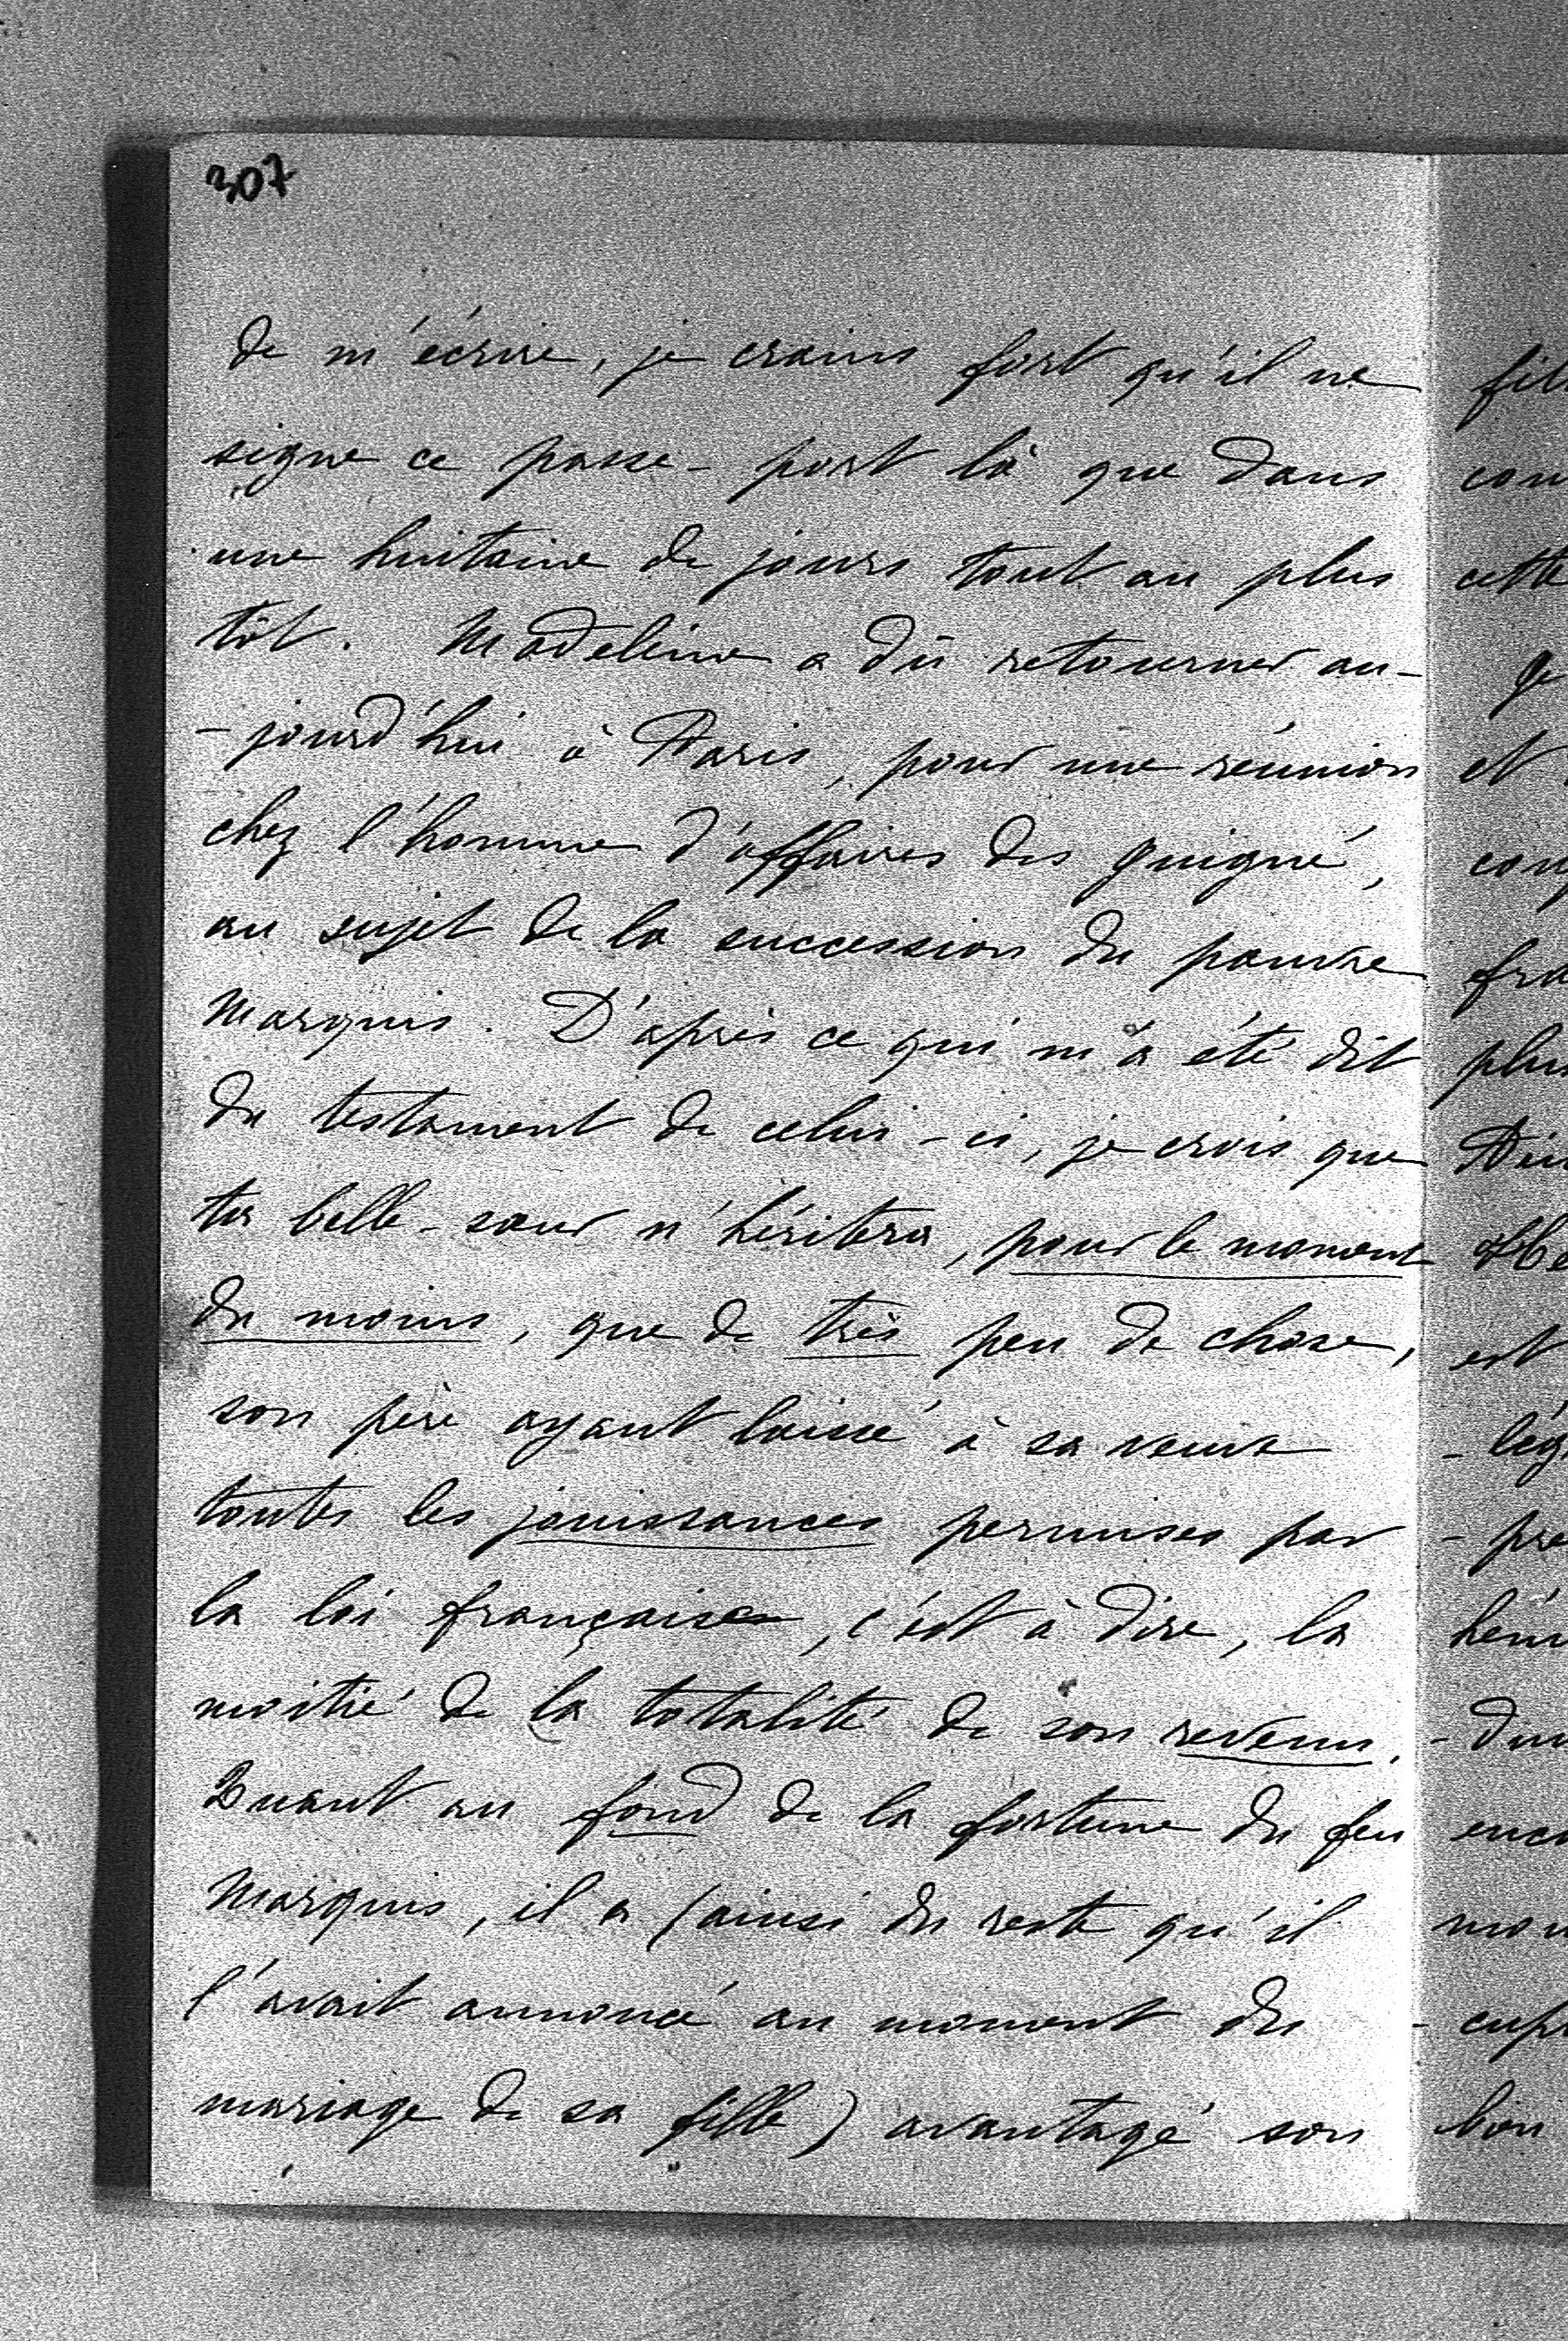 307
de m'écrire, je crains fort qu'il ne
signe ce passe-port là que dans
une huitaine de jours tout au plus
tôt. Madeleine a dû retourner au-
-jourd'hui à Paris, pour une réunion
chez l'homme d'affaires des Guigné,
au sujet de la succession du pauvre
Marquis. D'après ce qui m'a été dit
du testament de celui-ci, je crois que
ta belle-sœur n'héritera, pour le moment
du moins, que de très peu de chose,
son père ayant laissé à sa veuve
toutes les jouissances permises par
la loi française, c'est à dire, la
moitié de la totalité de son revenu.
Quant au fond de la fortune du feu
Marquis, il a (ainsi du reste qu'il
l'avait annoncé au moment du
mariage de sa fille) avantagé son